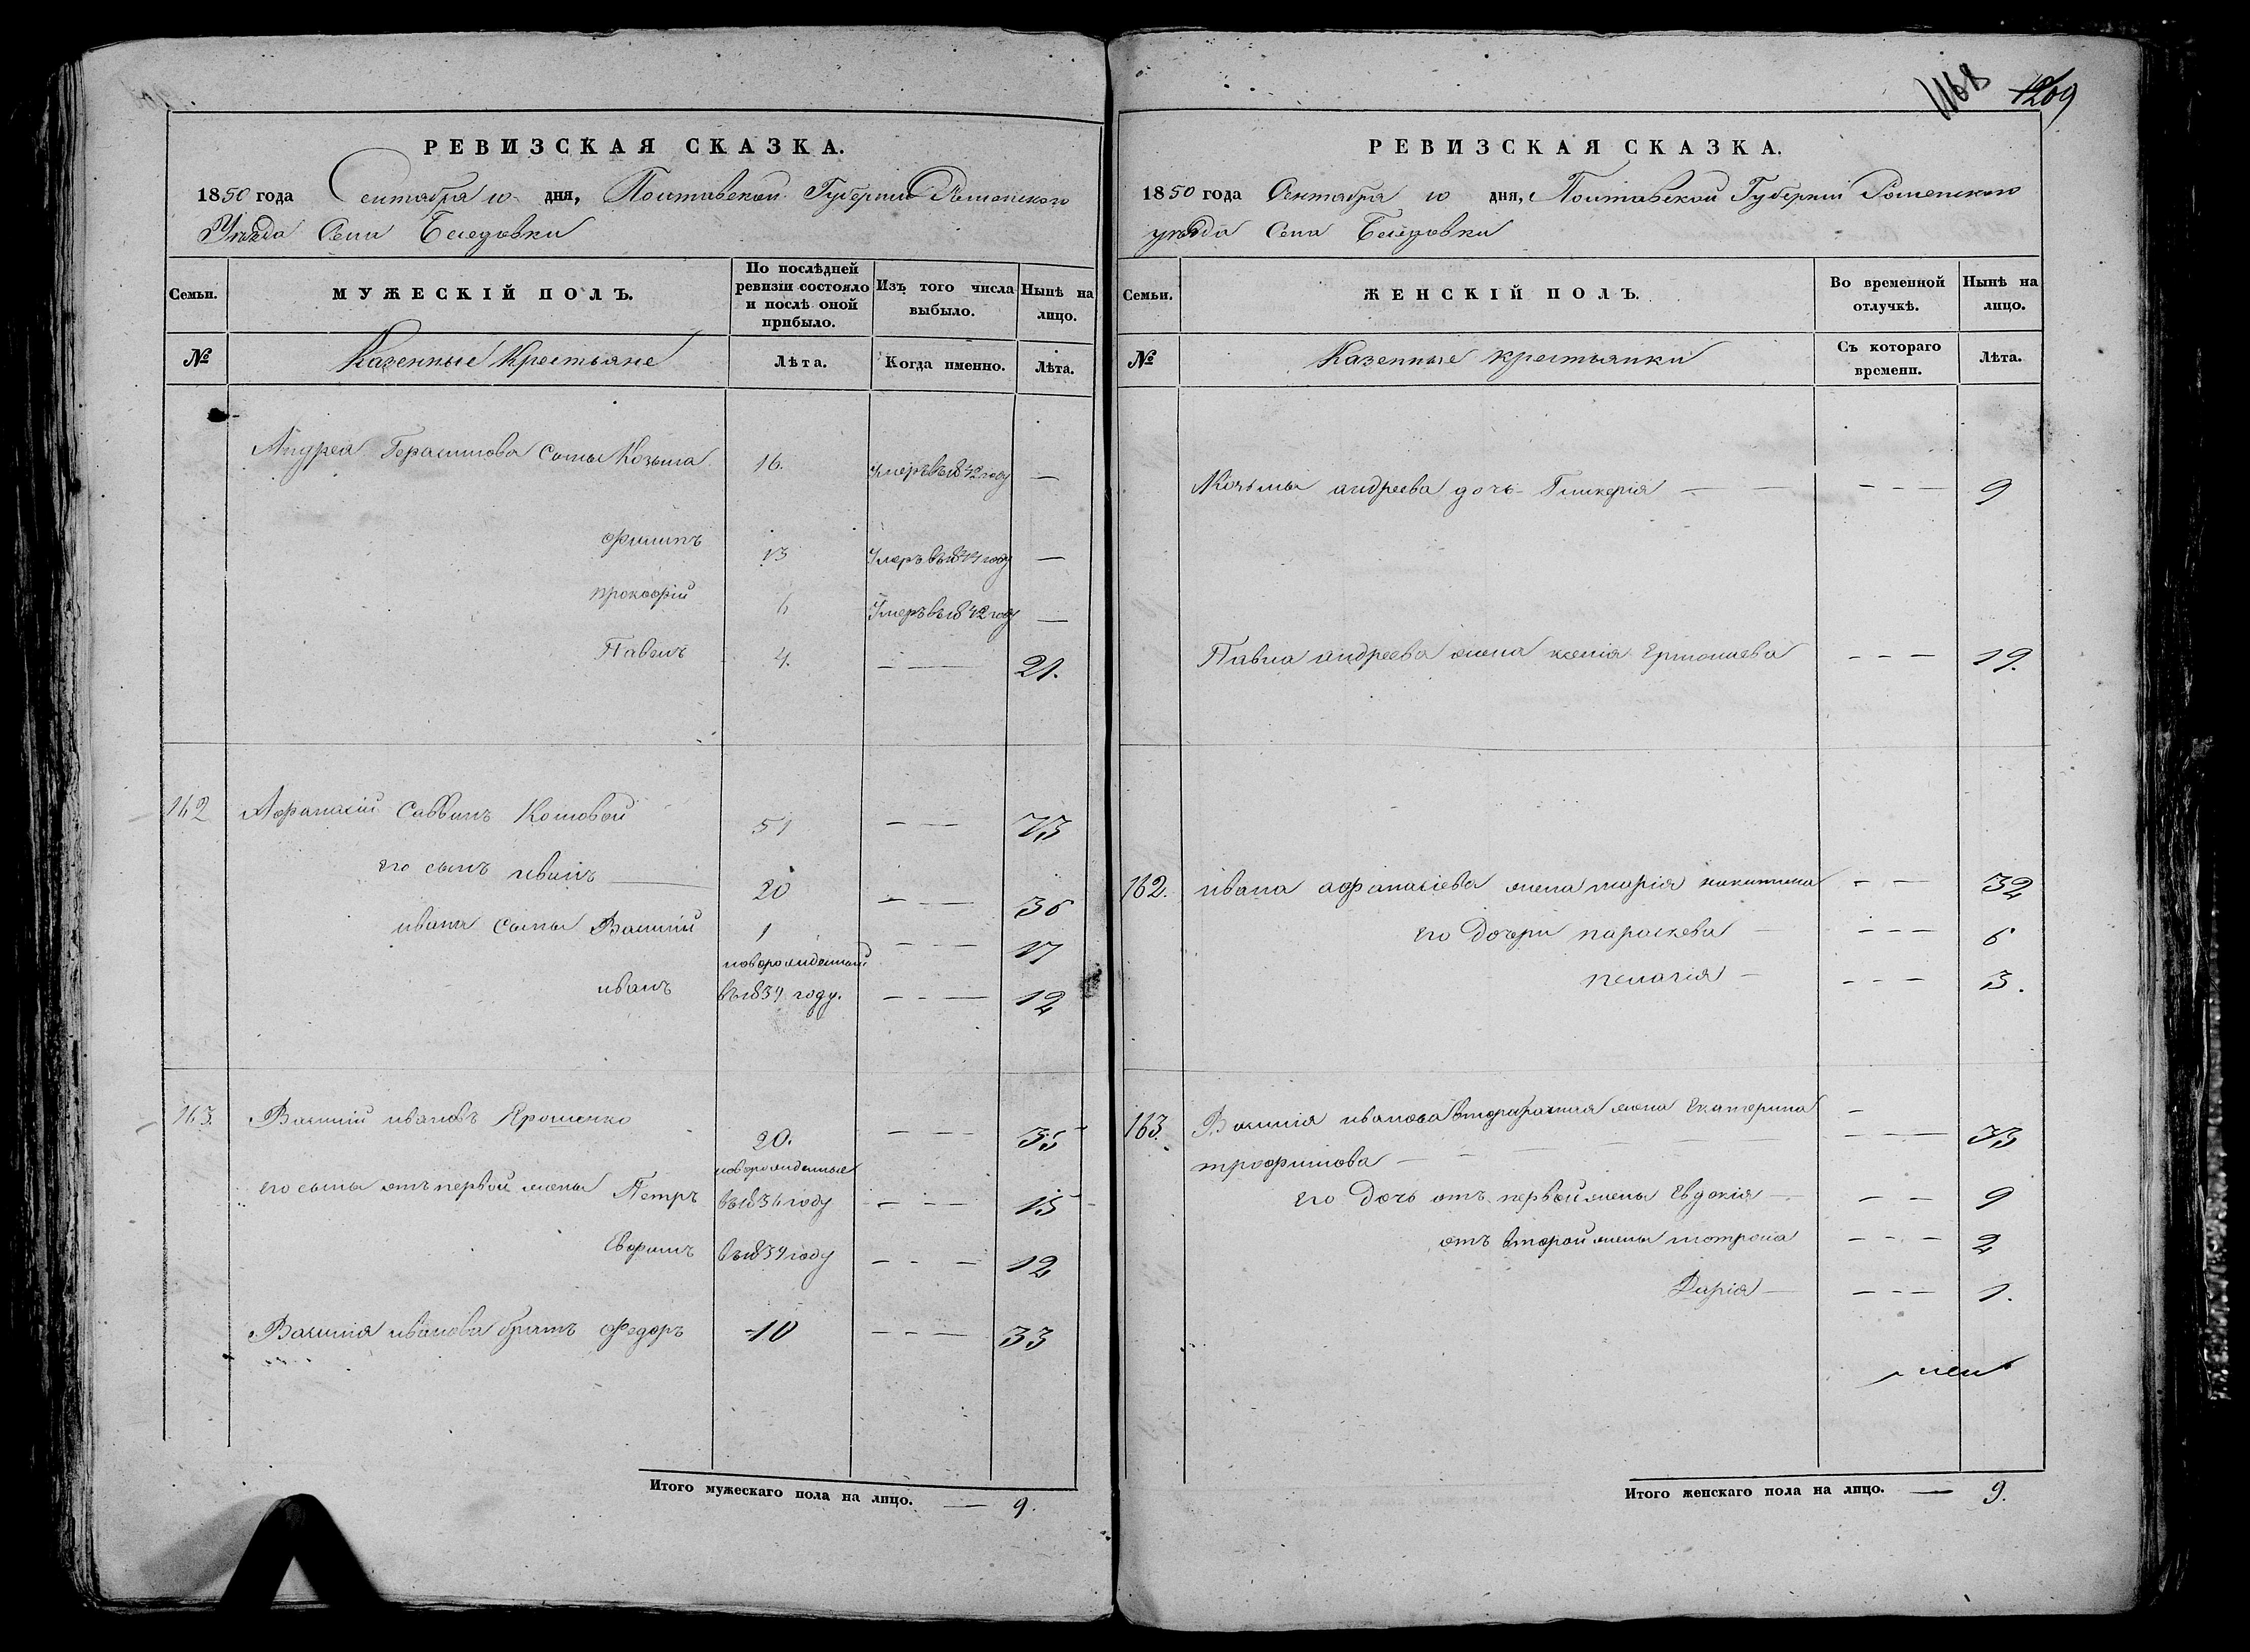 РЕВИЗСКАЯ СКАЗКА.
1850 года Сентября 10 дня, Полтавской Губернии Роменского
Уезда Села Беседовки
Семьи.
МУЖЕСКІЙ ПОЛЪ.
По послѣдней ревизіи состояло и послѣ оной прибыло.
Изъ того числа выбыло.
Нынѣ на лицо.
№
Казенные Крестьяне
Лѣта.
Когда именно.
Лѣта.
Андрея Герасимова сыны Козьма 16. Умеръ въ 1842 году —
Филипъ 13 Умеръ въ году —
Прокофій 6 Умеръ въ 1842 году —
Павелъ 4. — — 21.
162 Афанасій Саввинъ Котовой 51 — — 73
его сынъ иванъ — 20 — — 36
ивана сыны Василій 1 — — 17
новорожденный
иванъ въ 1839 году. — — 12
163. Василій ивановъ Ярошенко 20. — — 35
новорожденные
его сыны отъ первой жены Петръ въ 1836 году — — 15
Евфимъ въ 1839 году — — 12
Василія иванова братъ Федоръ 10 — — — 33
Итого мужескаго пола на лицо. — 9.
1168 1209
РЕВИЗСКАЯ СКАЗКА.
1850 года Сентября 10 дня, Полтавской Губерніи Роменского
уезда Села Беседовки
Семьи.
ЖЕНСКІЙ ПОЛЪ.
Во временной отлучкѣ.
Нынѣ на лицо.
№
Казенные крестьянки
Съ котораго времени.
Лѣта.
Козьмы андреева дочь Гликерія — — — — — 9
Павла андреева жена ксенія Ермолаева — — — 19.
162. ивана афанасіева жена марія никитина — — 32
его дочери параскева — — — — 6
пелагія — — — — 3.
163. Василія иванова второбрачная жена Екатерина —
трофимова — — — — 33
его дочь отъ первой жены Евдокія — — — 9
отъ второй жены мотрона — — — 2
Дарія — — — — 1.
Итого женскаго пола на лицо. — 9.